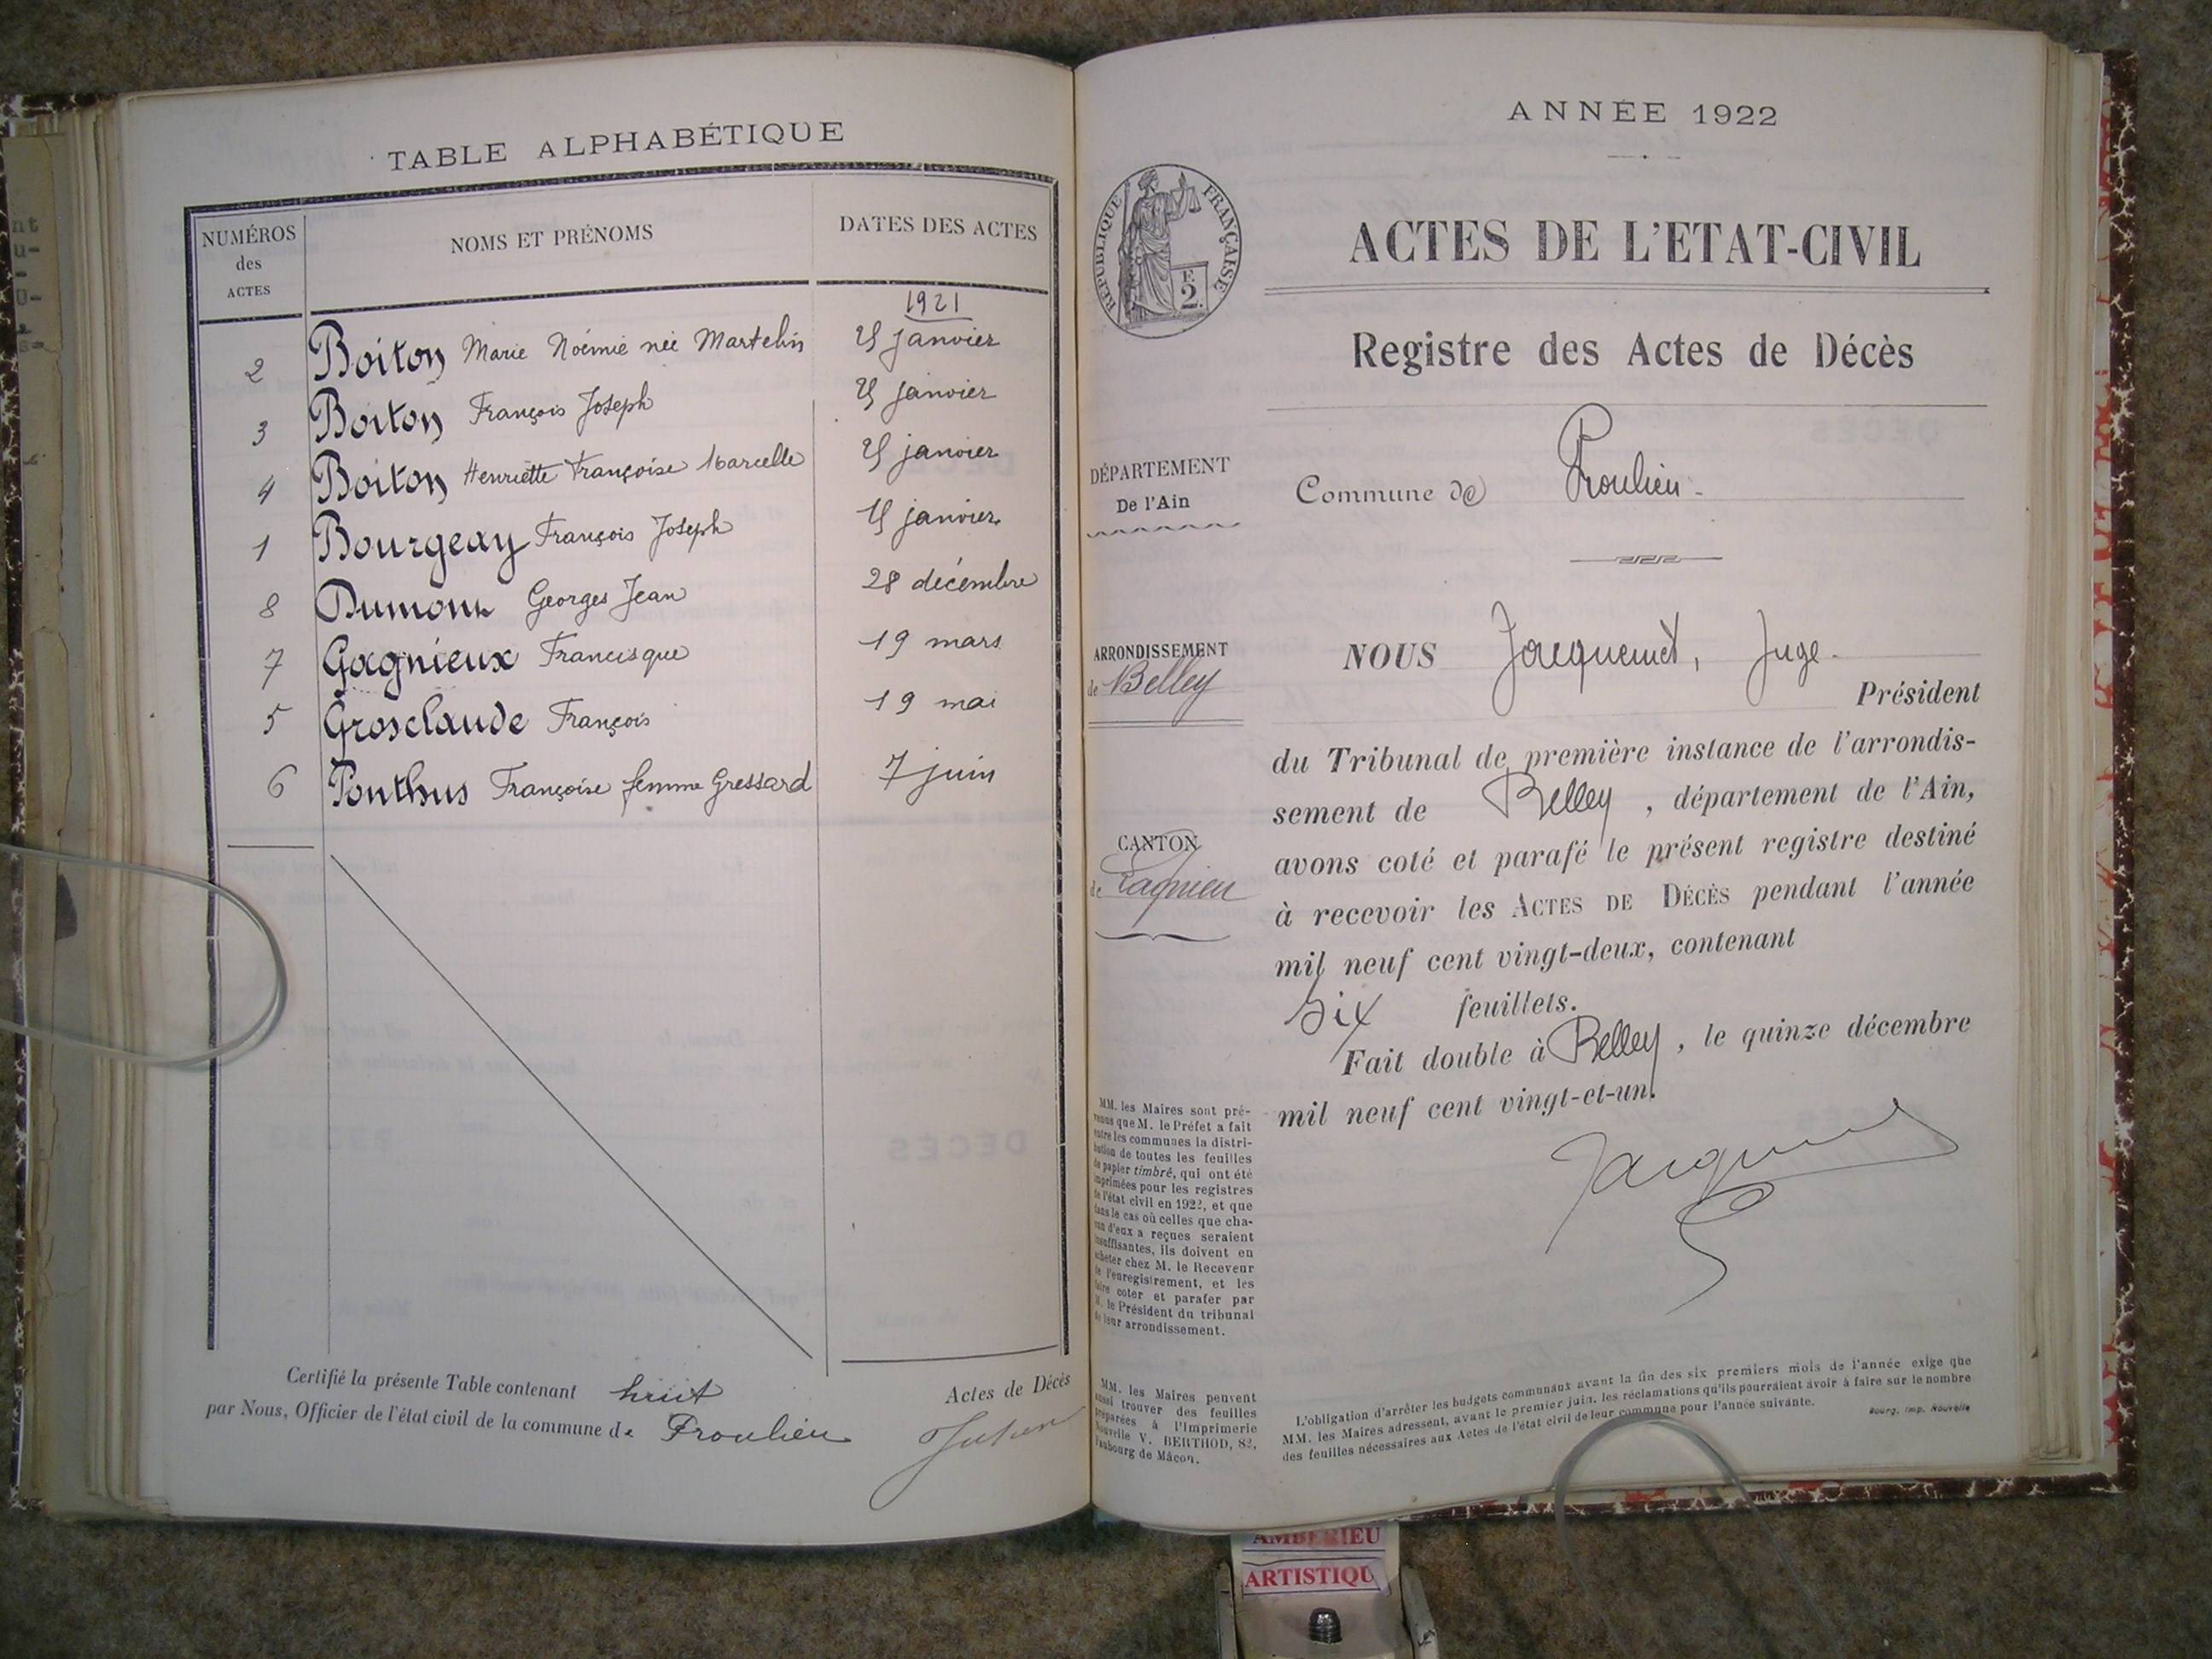 TABLE ALPHABÉTIQUE
NUMÉROS
des
ACTES
NOMS ET PRÉNOMS
DATES DES ACTES
1921
2 Boiton Marie Noémie née Martelin janvier
3 Boiton François Joseph janvier
4 Boiton Henriette Françoise Marcelle janvier
1 Bourgeay François Joseph janvier
8 Dumont Georges Jean 28 décembre
7 Gagnieux Francisque 19 mars
5 Grosclaude François 19 mai
6 Ponthus Françoise femme Gressard 7 juin
Certifié la présente Table contenant huit Actes de Décès
par Nous, Officier de l'état civil de la commune de Proulieu
ANNÉE 1922
RÉPUBLIQUE FRANÇAISE
F.
2.
ACTES DE L'ETAT-CIVIL
Registre des Actes de Décès
DÉPARTEMENT
De l'Ain
Commune de Proulieu.
ARRONDISSEMENT
de Belley
CANTON
de Lagnieu
NOUS Jacquemet, Juge.
Président
du Tribunal de première instance de l'arrondis-
sement de Belley, département de l'Ain,
avons coté et parafé le présent registre destiné
à recevoir les ACTES DE DÉCÈS pendant l'année
mil neuf cent vingt-deux, contenant
six feuillets.
Fait double à Belley, le quinze décembre
mil neuf cent vingt-et-un.
MM. les Maires sont pré-
venus que M. le Préfet a fait
entre les communes la distri-
bution de toutes les feuilles
de papier timbré, qui ont été
imprimées pour les registres
de l'état civil en 1922, et que
dans le cas où celles que cha-
cun d'eux a reçues seraient
insuffisantes, ils doivent en
acheter chez M. le Receveur
de l'enregistrement, et les
faire coter et parafer par
M. le Président du tribunal
de leur arrondissement.
MM. les Maires peuvent
aussi trouver des feuilles
préparées à l'Imprimerie
Nouvelle V. BERTHOD, 82,
Faubourg de Mâcon.
L'obligation d'arrêter les budgets communaux avant la fin des six premiers mois de l'année exige que
MM. les Maires adressent, avant le premier juin, les réclamations qu'ils pourraient avoir à faire sur le nombre
des feuilles nécessaires aux Actes de l'état civil de leur commune pour l'année suivante.
Bourg, Imp. Nouvelle
AMBERIEU
ARTISTIQU